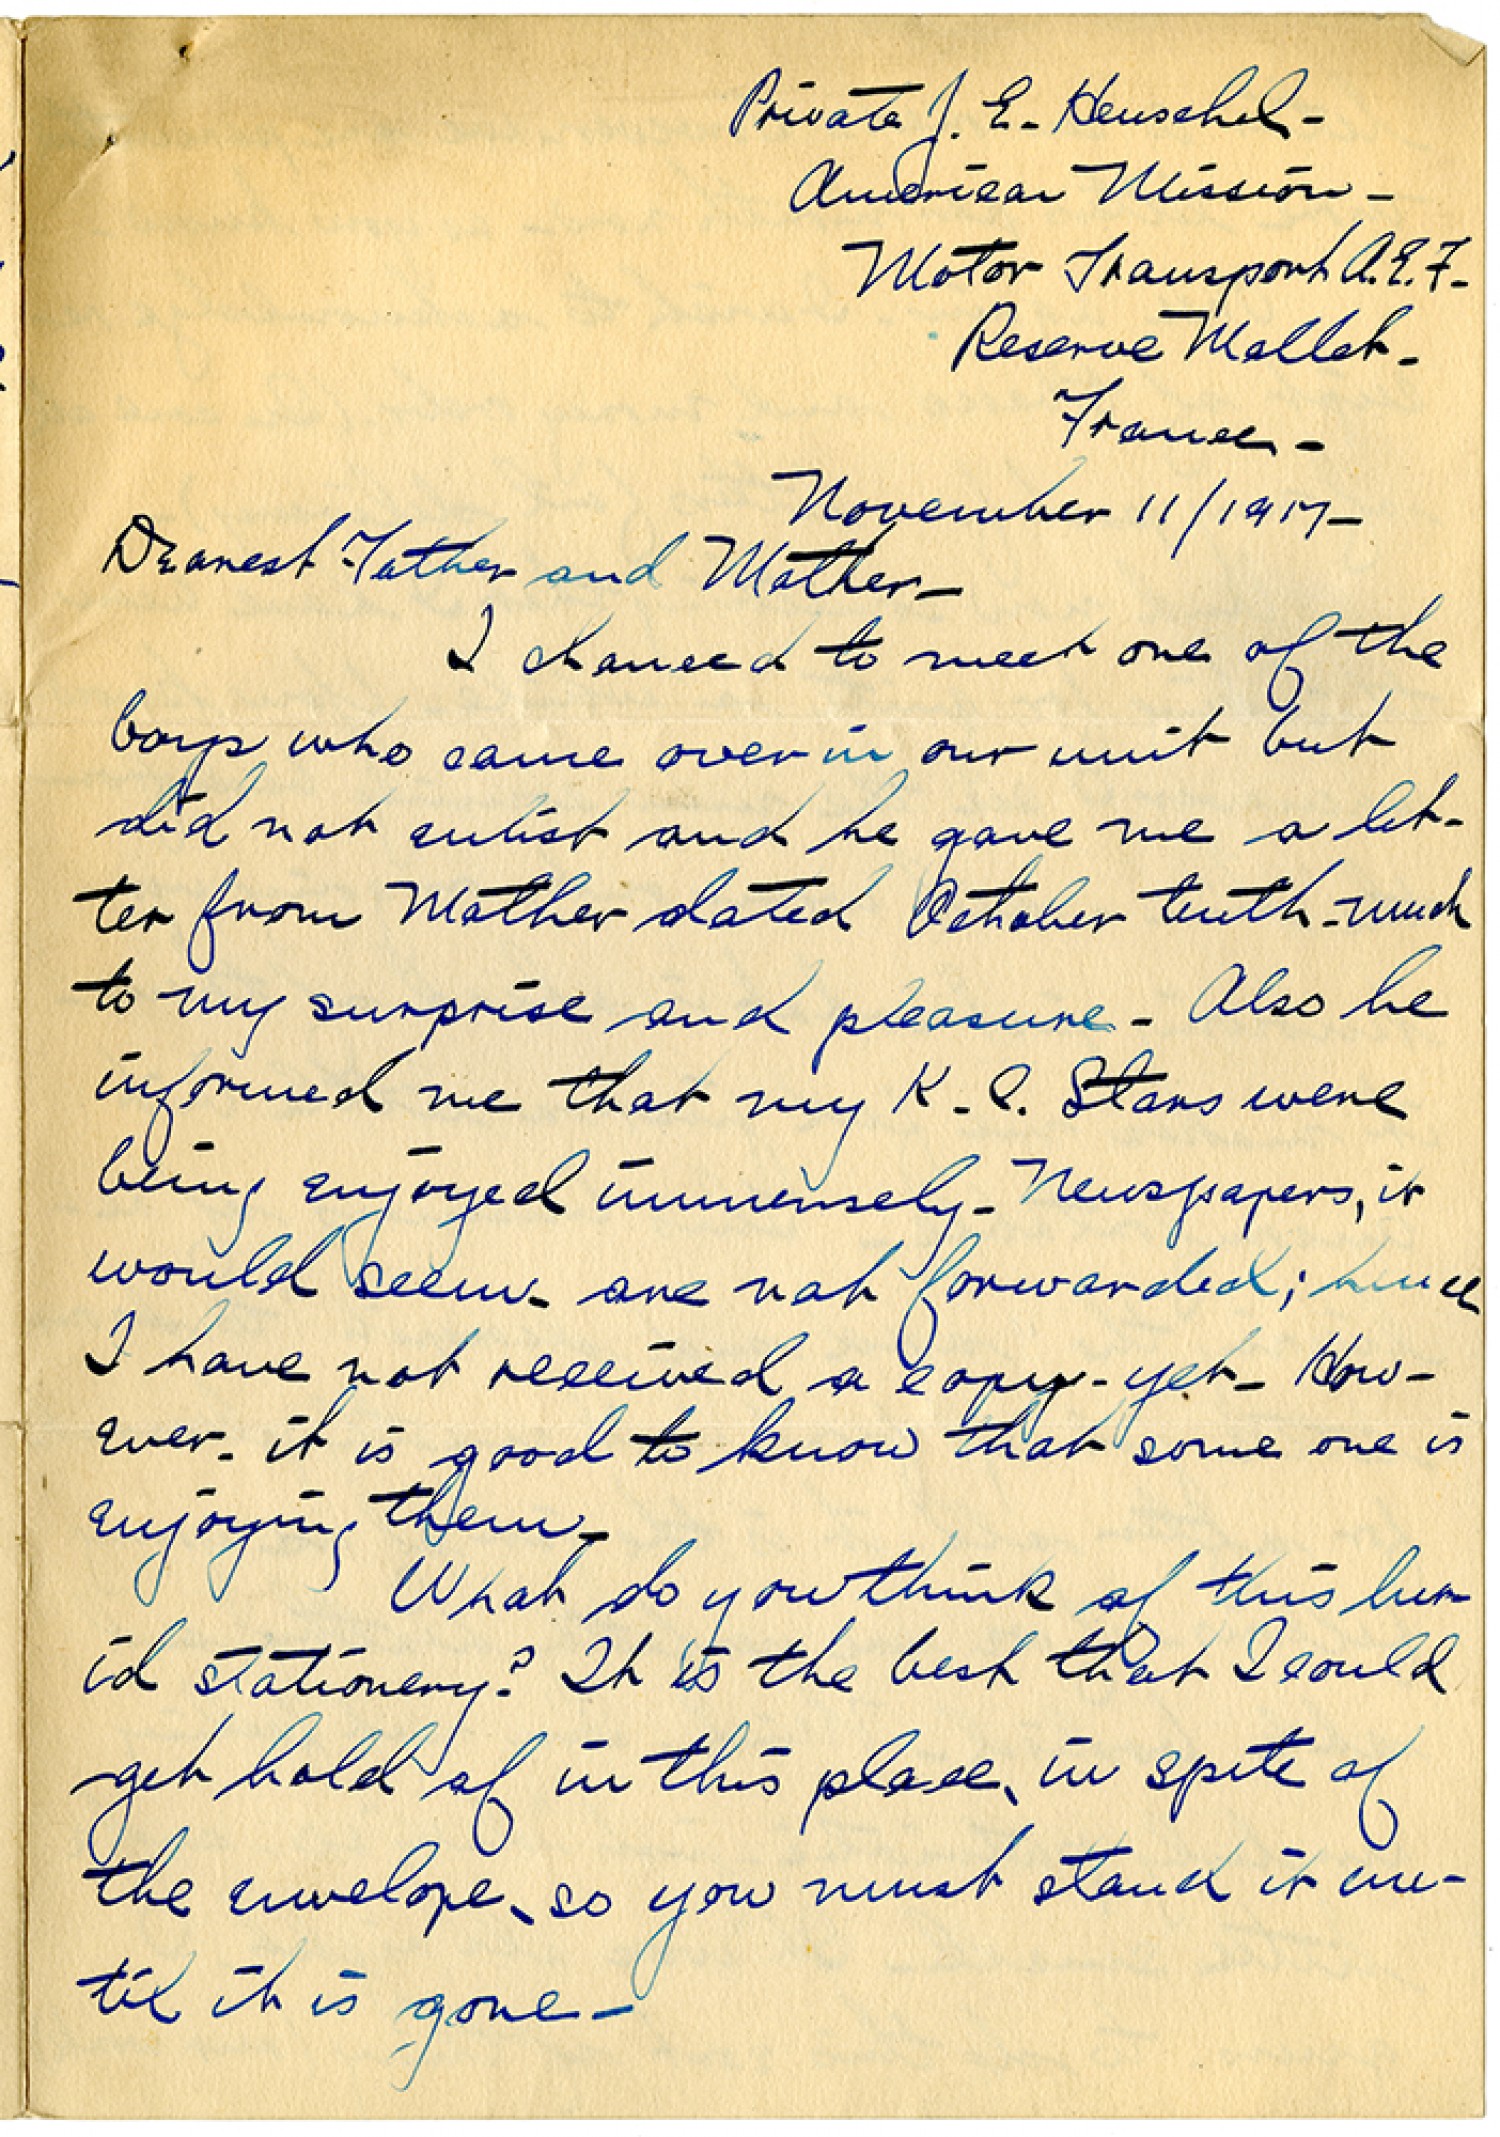 Private J. E. Henschel-
American Mission-
Motor Transport A.E.F-
Reserve Mallet-
France-
November 11/1917-
Dearest Father and Mother-
I chanced to meet one of the
boys who came over in our unit but
did not enlist and he gave me a let-
ter from Mother dated October tenth-much
to my surprise and pleasure- Also he
informed me that my K-C. Stars were
being enjoyed immensely- Newspapers, it
would seem- are not forwarded; hence
I have not received a copy-yet- How-
ever- it is good to know that some one is
enjoying them-
What do you think of this lur-
id stationery? It is the best that I could
get hold of in this place, in spite of
the envelope, so you must stand it un-
til it is gone-